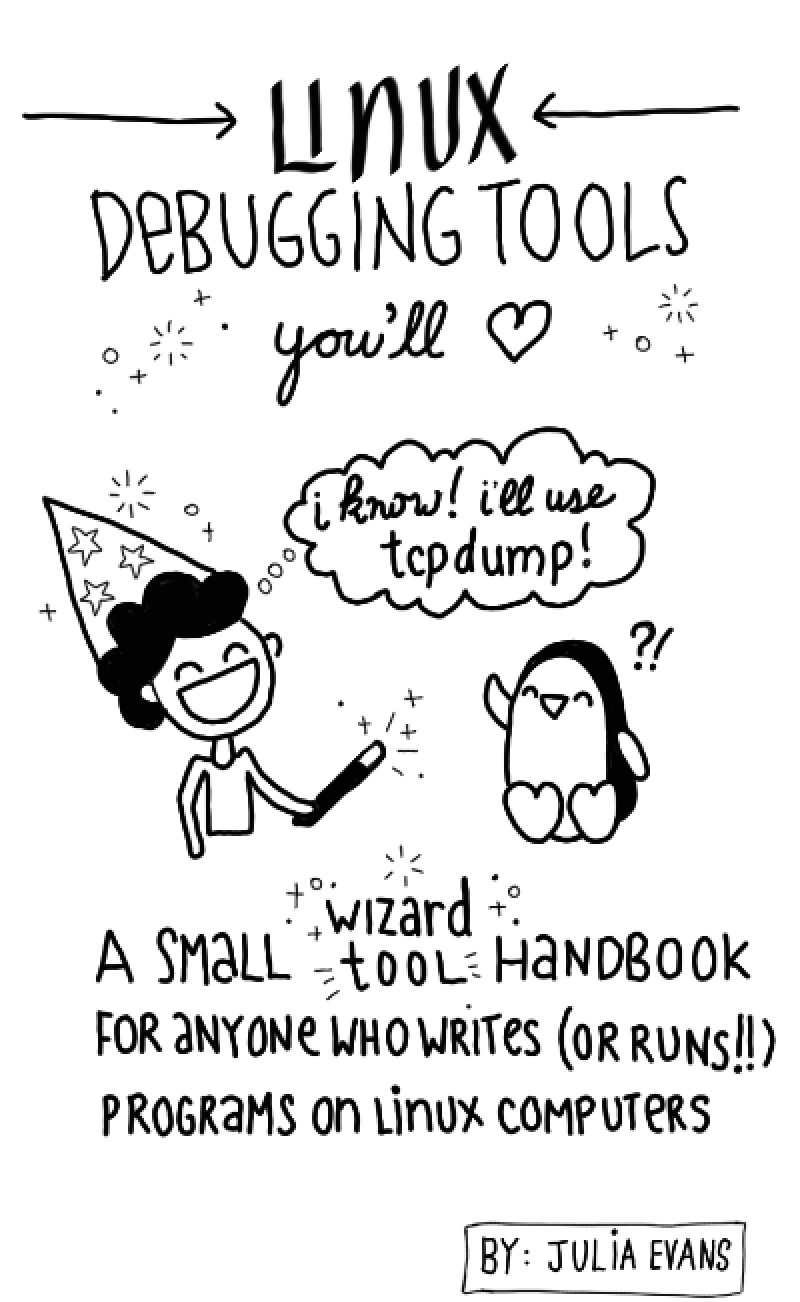 LINUX
DEBUGGING TOOLS
you'll ♡
i know! i'll use
tcpdump!
?!
A SMALL wizard tool HANDBOOK
FOR ANYONE WHO WRITES (OR RUNS!!)
PROGRAMS ON LINUX COMPUTERS
BY: JULIA EVANS